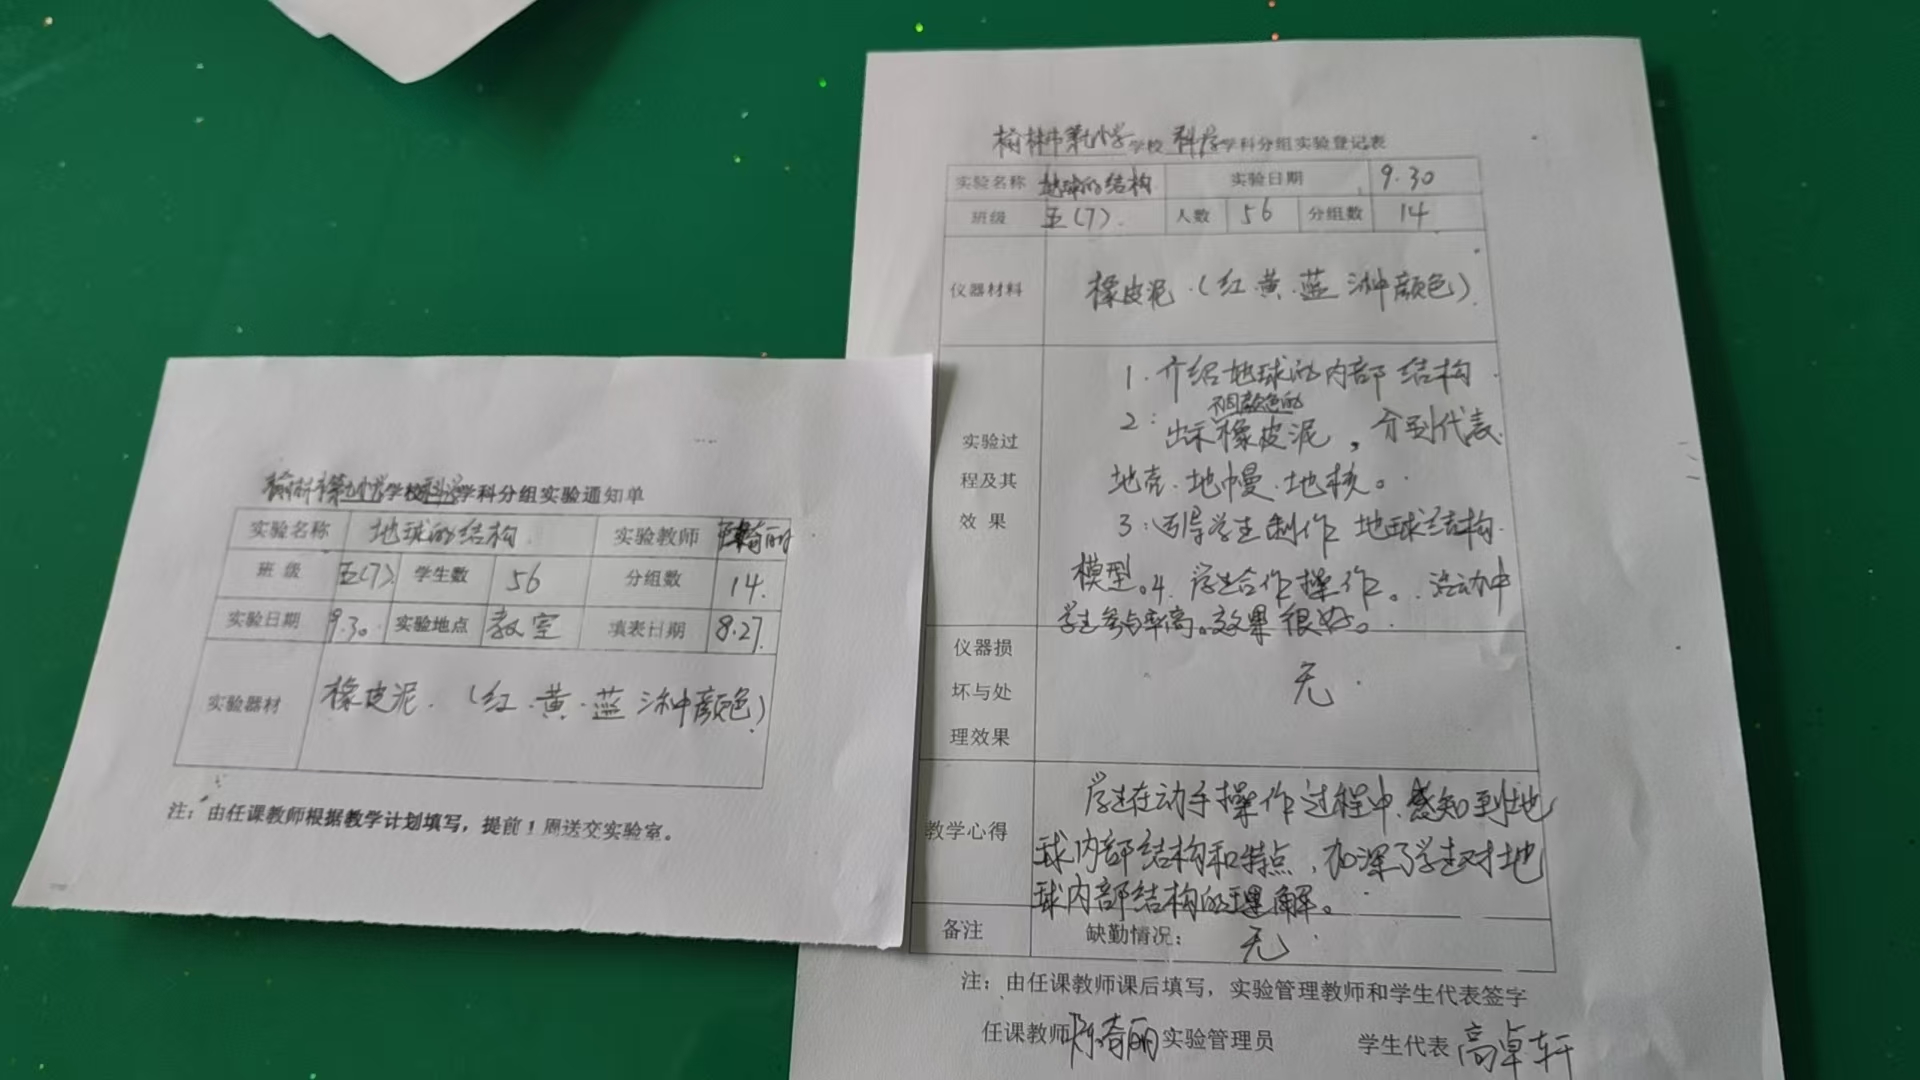 榆林市第九小学学校科学学科分组实验通知单
实验名称 地球的结构 实验教师 陈奇丽
班级 五(7) 学生数 56 分组数 14.
实验日期 9.30 实验地点 教室 填表日期 8.27.
实验器材 橡皮泥.(红.黄.蓝三种颜色).
注:由任课教师根据教学计划填写,提前1周送交实验室。
榆林市第九小学学校 科学学科分组实验登记表
实验名称 地球的结构 实验日期 9.30
班级 五(7). 人数 56 分组数 14
仪器材料 橡皮泥.(红.黄.蓝三种颜色).
实验过程及其效果
1. 介绍地球的内部结构.
不同颜色的
2: 出示橡皮泥,分别代表
地壳.地幔.地核。
3:引导学生制作地球结构
模型。4.学生合作操作。活动中
学生参与率高。效果很好。
仪器损坏与处理效果 无.
教学心得
学生在动手操作过程中.感知到地
球内部结构和特点,加深了学生对地
球内部结构的理解。
备注 缺勤情况: 无
注:由任课教师课后填写,实验管理教师和学生代表签字
任课教师 陈奇丽 实验管理员 学生代表 高卓轩